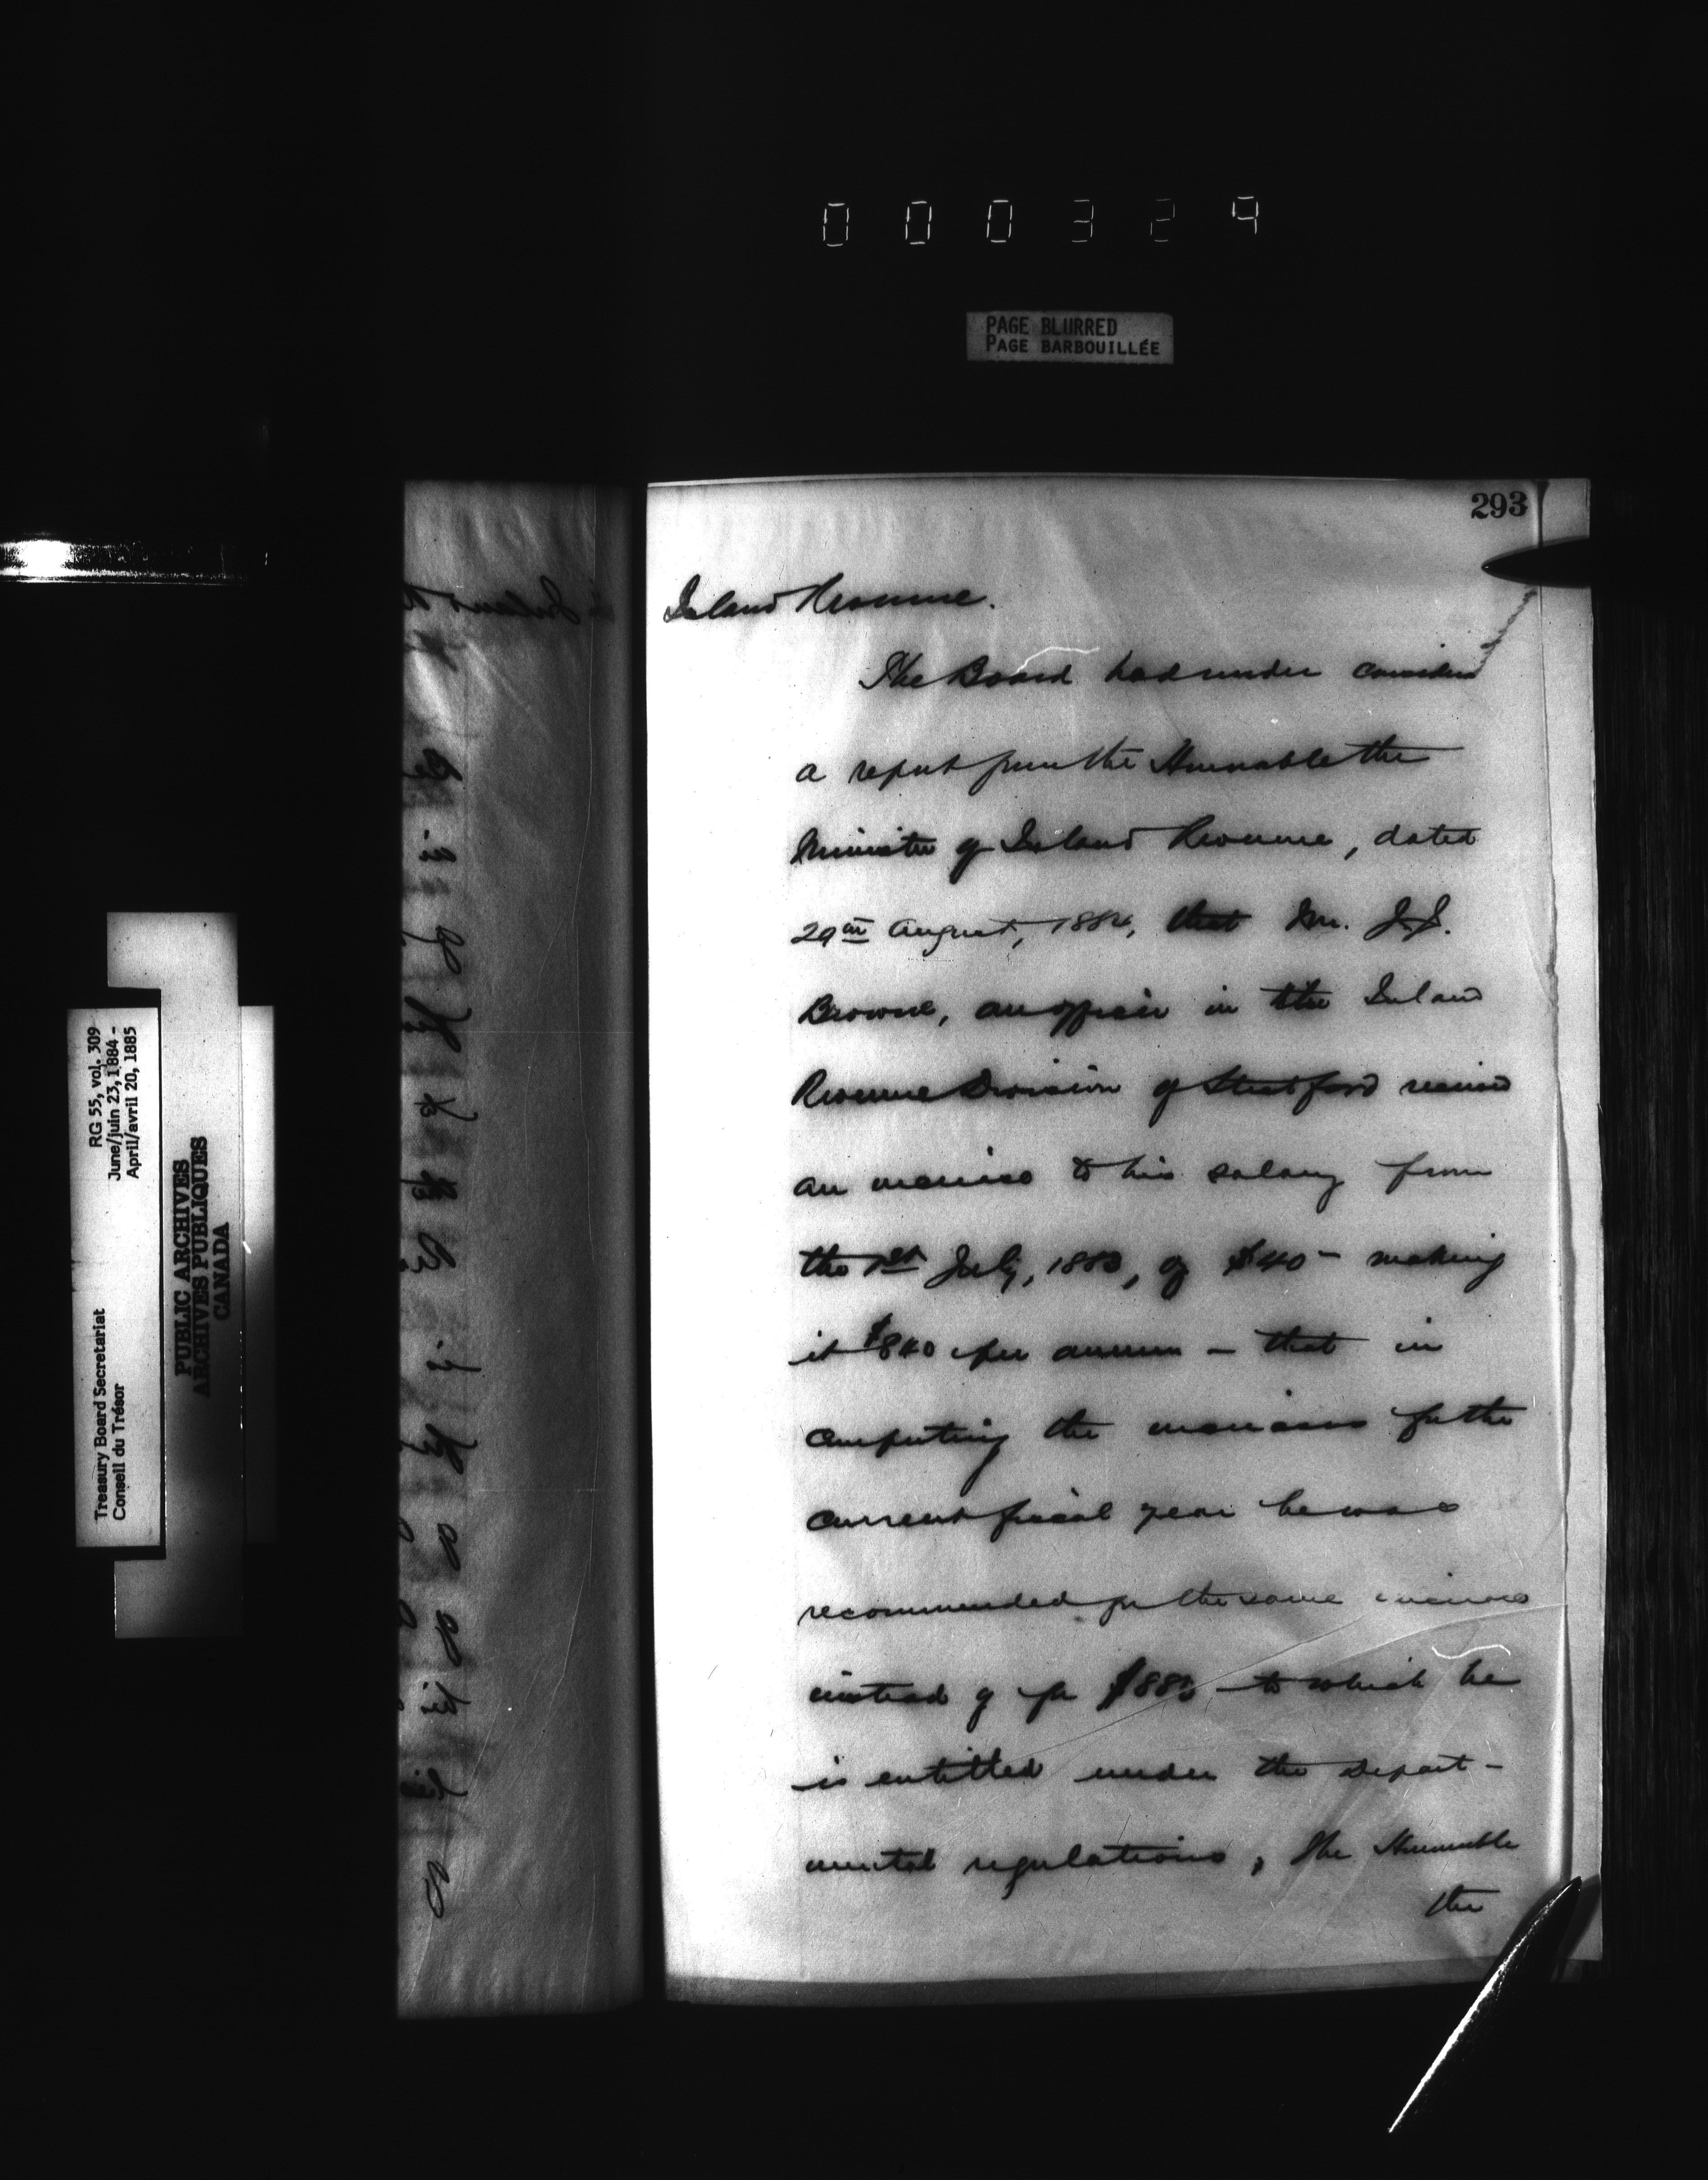 000324
PAGE BLURRED
PAGE BARBOUILLÉE
293
Inland Revenue.
The Board had under consider
a report from the Honorable the
Minister of Inland Revenue, dated
29th August, 1884, that Mr. J.J.
Browne, an officer in the Inland
Revenue Division of Stratford received
an increase to his salary from
the 1st July, 1883, of $40 - making
it $840 per annum - that in
computing the increases for the
current fiscal year he was
recommended for the same increase
instead of for $880 to which he
is entitled under the Depart-
mental regulations, The Honorable
the
RG 55, vol. 309
June/juin 23, 1884 -
April/avril 20, 1885
Treasury Board Secretariat
Conseil du Trésor
PUBLIC ARCHIVES
ARCHIVES PUBLIQUES
CANADA